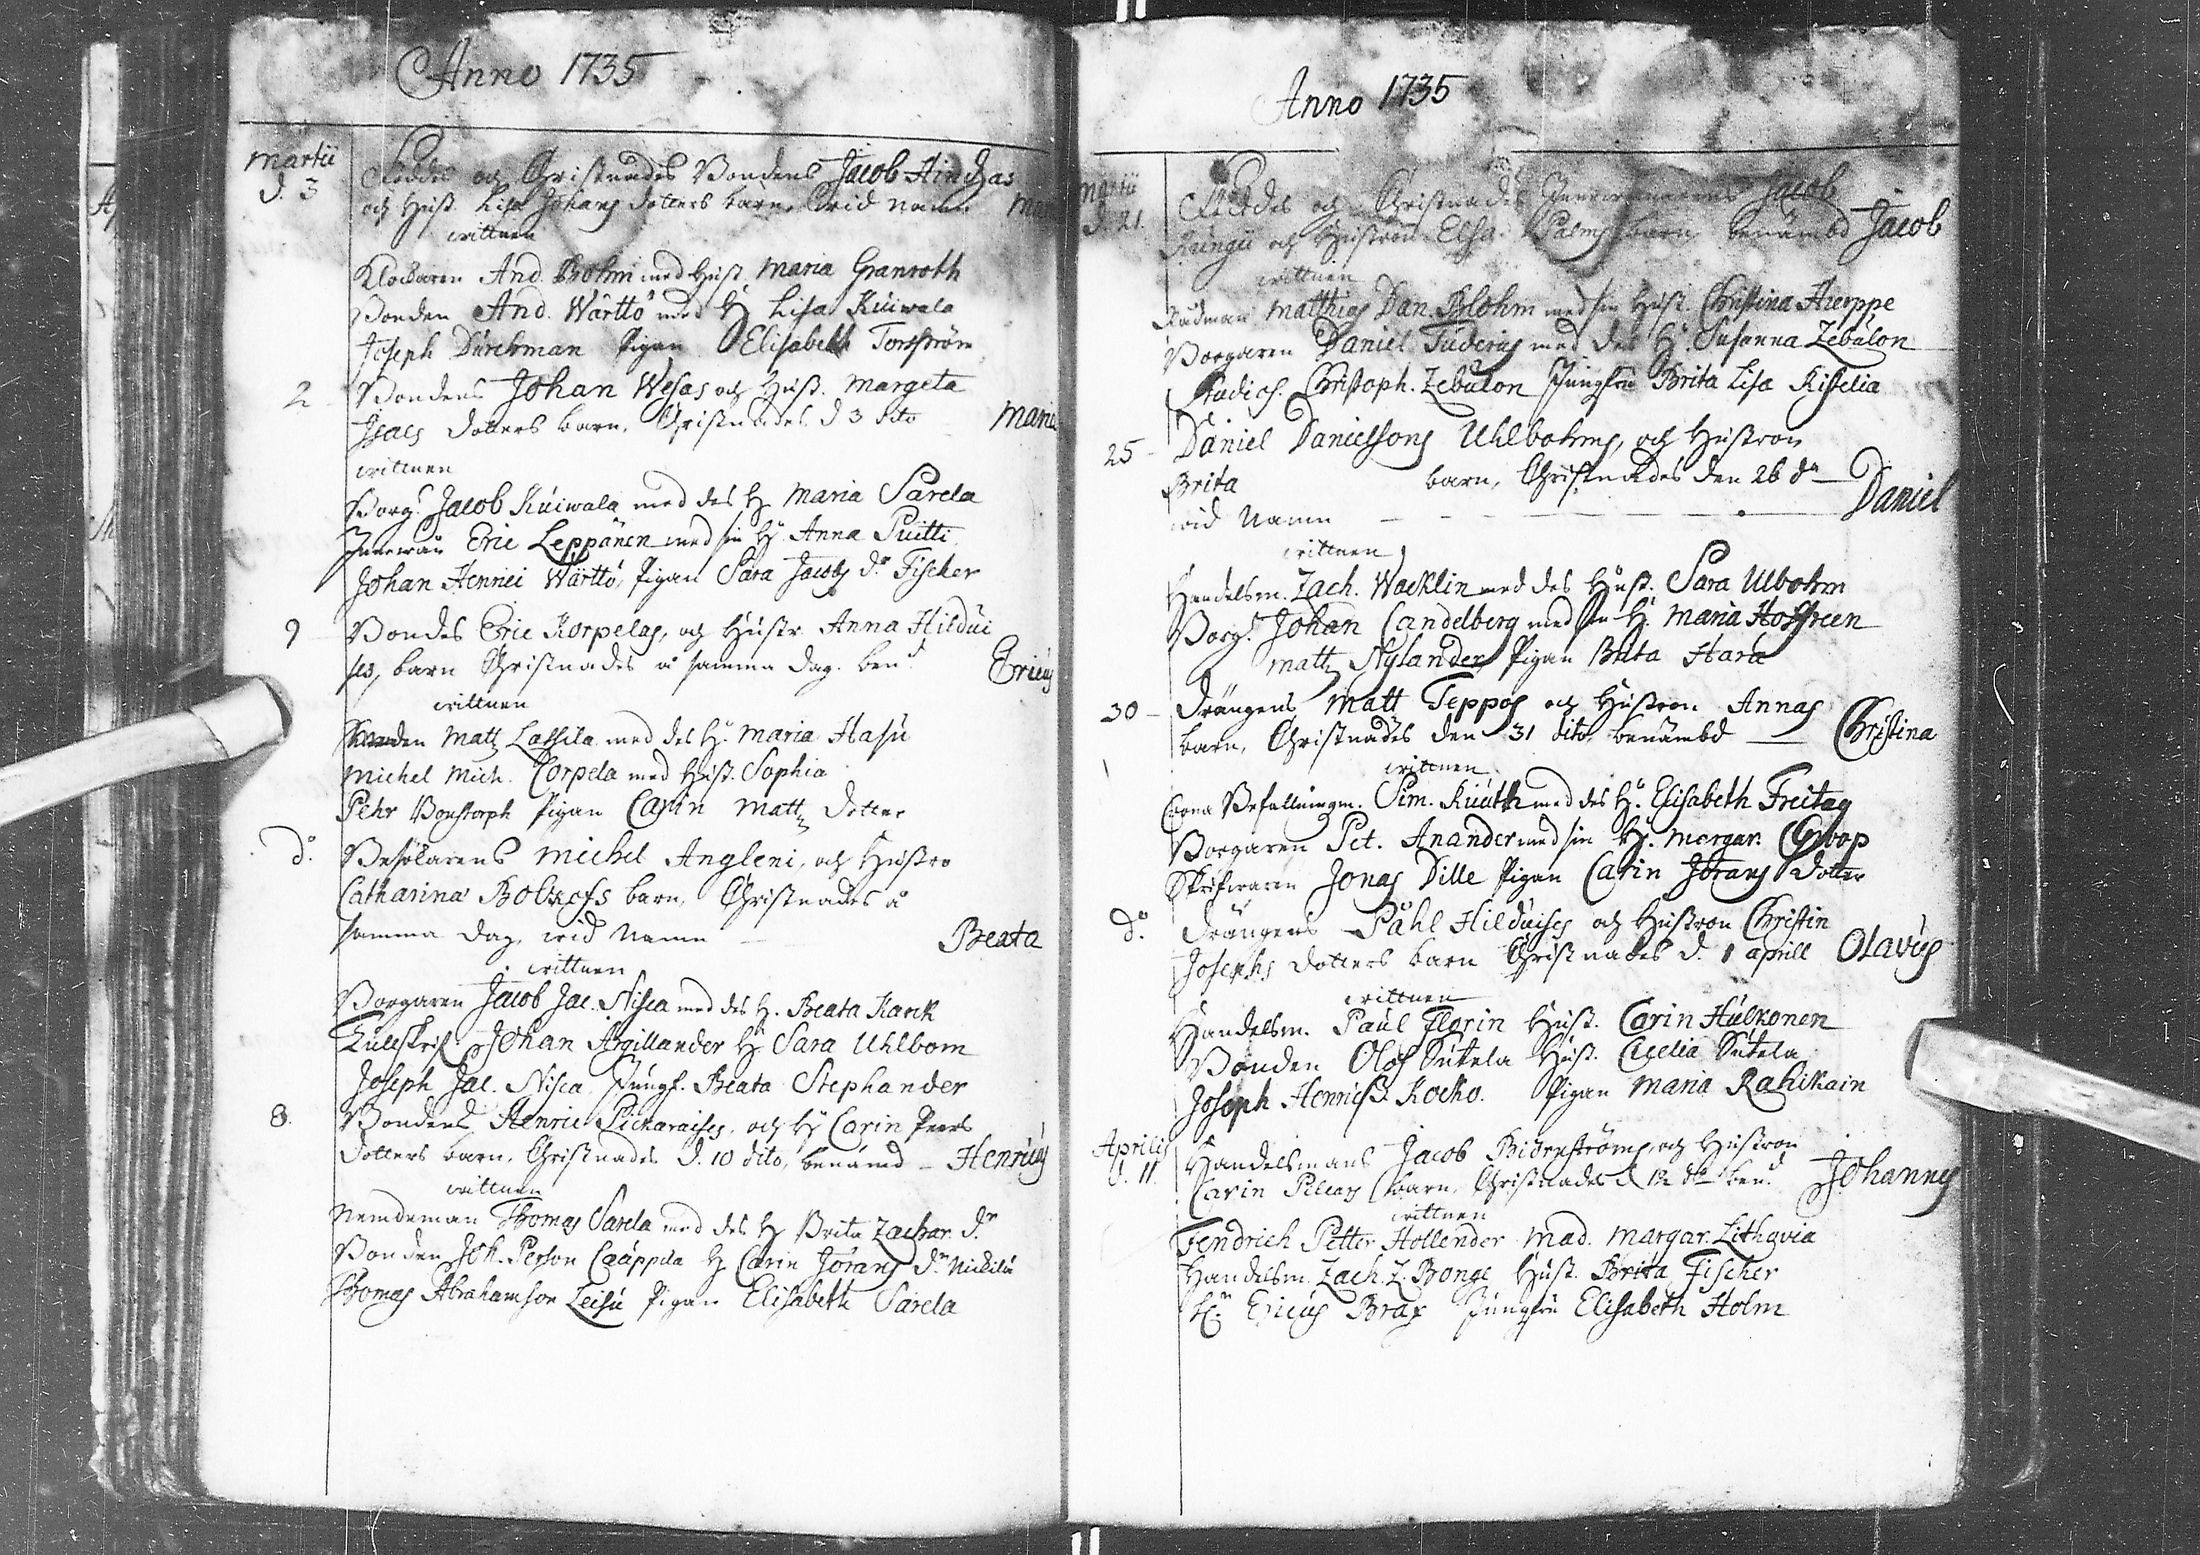 Anno 1735
Martii
d. 3
Föddes och Christnades Bondens Jacob Hindzas
och Hust. Lisa Johans dotters barn, wid namn
wittnen
Klockaren And. Bohm med Hust. Maria Granroth
Bonden And. Wärttö med H. Lisa Kuiwala
Joseph Durchman Pigan Elisabeth Torsström
2 Bondens Johan Wesas och Hust. Margeta
Isacs dotters barn, Christnades d 3 dito Maria
wittnen
Borg. Jacob Kuiwala med des H. Maria Sarela
Eric Leppänen med sin H. Anna Puitti
Johan Henrici Wärttö, Pigan Sara Jacobs dr Fischer
9 Bondes Eric Korpelas, och Hustr. Anna Hildui
ses, barn Christnades a samma dag. ben.d Ericus
wittnen
Matts Lassila med des H. Maria Hasu
Michel Mich. Corpela med Hust. Sophia
Pehr Bonstorph Pigan Carin Matts dotter
do. Besökarens Michel Angleni, och Hustro
Catharina barn, Christnades a
samma dag, wid Namn Beata
wittnen
Borgaren Jacob Jac. Nisca med des H. Beata Kank
Tullskrif. Johan Argillander H. Sara Uhlbom
Joseph Jac. Nisca, Jungf. Beata Stephander
8. Bondens Henric Pickaraises, och H. Carin Peers
dotters barn, Christnades d. 10 dito, benämd Henricus
wittnen
Nemdeman Thomas Sarela med des H Brita Zachar. dr
Bonden Joh. Person Caåppila H. Carin Jörans dr Nickilä
Thomas Abrahamson Leisu Pigan Elisabeth Sarela
Anno 1735
Martii
d. 21
Föddes och Christnades Jacob
och Hustrun Elsa Palms barn, benämbd Jacob
wittnen
Rådman Matthias Dan. Blohm med sin Hust. Christina Hierppe
Borgaren Daniel Tuderus med des H. Susanna Zebulon
Studios. Christoph. Zebulon Jungfru Brita Lisa Kiselia
25 Daniel Danielssons Uhlbohms, och Hustron
Brita barn, Christnades den 26 do
wid Namn Daniel
wittnen
Handelsm. Zach. Wacklin med des Hust. Sara Ulbohm
Borg. Johan Candelberg med sin H. Maria Hoffreen
Matts Nylander Pigan Brita Hara
30 Drängens Matt Teppos och Hustron Annas
barn, Christnades den 31 dito benämbd Christina
wittnen
Crona Befallningm. Sim. Kuuth med des H. Elisabeth Freitag
Borgaren Pet. Anander med sin H. Margar. Groop
Skrifwaren Jonas Dille Pigan Carin Jörans dotter
do. Drängens Påhl Hilduises och Hustron Christin
Josephs dotters barn Christnades d. 1 aprill Olavus
wittnen
Handelsm. Paul Florin Hust. Carin Hulkonen
Bonden Olof Sutela Hust. Cecelia Sutela
Joseph Henrics. Kocko. Pigan Maria Rahikain
Aprilis
d. 11.
Handelsmans Jacob Biörnströms, och Hustron
Carin Pilcars barn, Christnades d 12 do ben.d Johannes
wittnen
Fendrich Petter Hollender Mad. Margar. Lithovia
Handelsm. Zach. Z. Bonge Hust. Brita Fischer
Hr. Ericus Brax Jungfru Elisabeth Holm